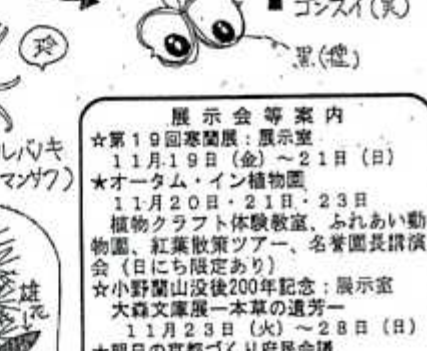 ゴンズイ(実)
黒(種)
展示会等案内
☆第19回寒蘭展:展示室
11月19日(金)~21日(日)
★オータム・イン植物園
11月20日・21日・23日
植物クラフト体験教室、ふれあい動
物園、紅葉散策ツアー、名誉園長講演
会(日にち限定あり)
☆小野蘭山没後200年記念:展示室
大森文庫展ー本草の遺芳ー
11月23日(火)~28日(日)
★明日の京都づくり府民会議
マンサク)
雄
花